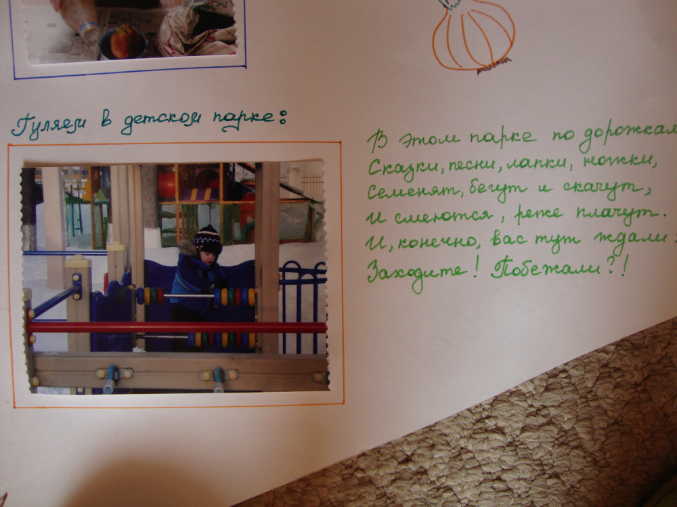 Гуляем в детском парке:
В этом парке по дорожкам
Сказки, песни, лапки, ножки,
Семенят, бегут и скачут,
И смеются, реже плачут.
И, конечно, вас тут ждали:
Заходите! Побежали?!